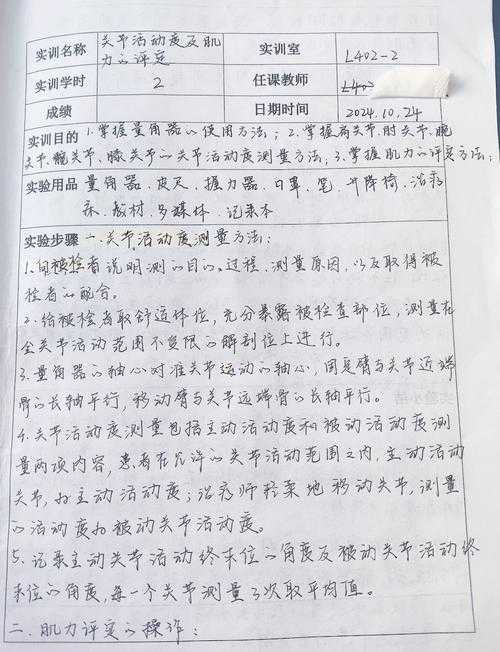 实训名称 关节活动度及肌力的评定 实训室 L402-2
实训学时 2 任课教师
成绩 日期时间 2024.10.24
实训目的 1.掌握量角器的使用方法；2.掌握肩关节、肘关节、腕
关节、髋关节、膝关节的关节活动度测量方法；3.掌握肌力的评定方法；
实验用品 量角器、皮尺、握力器、口罩、笔、升降椅、治疗
床、教材、多媒体、记录本
实验步骤 一.关节活动度测量方法：
1.向被检者说明测的目的、过程、测量原因，以及取得被
检者的配合。
2.给被检者取舒适体位，充分暴露被检查部位，测量在
全关节活动范围不受限的解剖位上进行。
3.量角器的轴心对准关节运动的轴心，固定臂与关节近端
骨的长轴平行，移动臂与关节远端骨的长轴平行。
4.关节活动度测量包括主动活动度和被动活动度测
量两项内容，患者在允许的关节活动范围之内，主动活动
关节，为主动活动度；治疗师轻柔地移动关节，测量
的活动度为被动关节活动度。
5.记录主动关节活动终末位的角度及被动关节活动终
末位的角度，每一个关节测量3次取平均值。
二.肌力评定的操作：